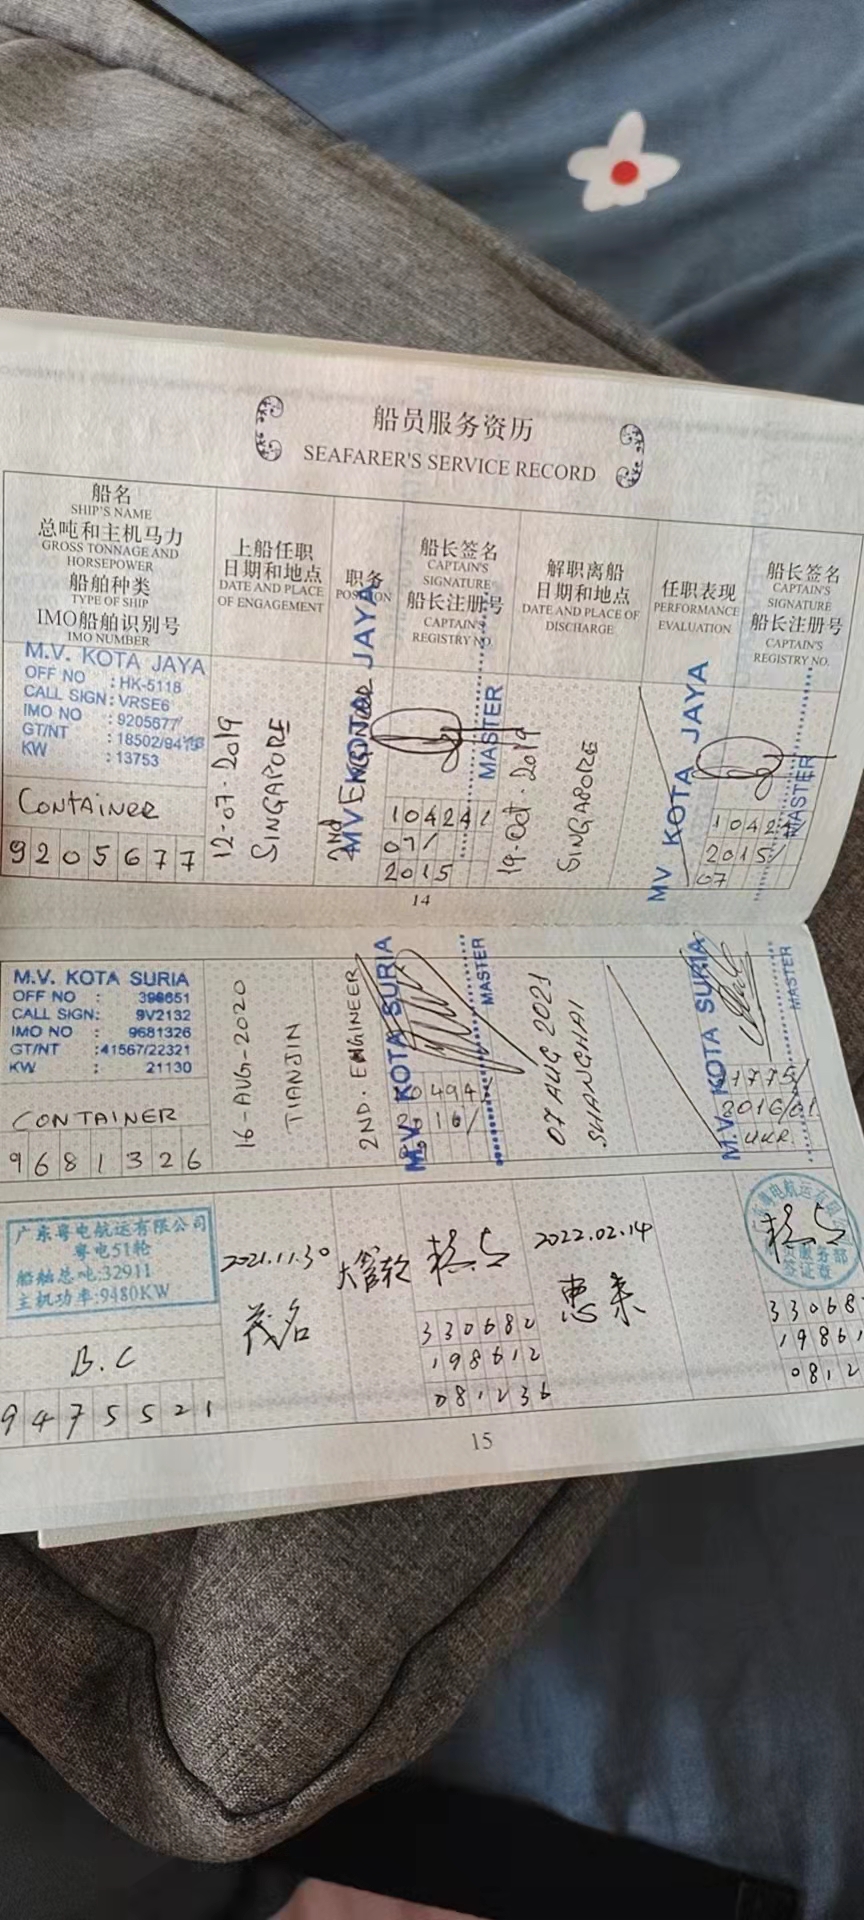 船员服务资历
SEAFARER'S SERVICE RECORD
船名
SHIP'S NAME
总吨和主机马力
GROSS TONNAGE AND
HORSEPOWER
船舶种类
TYPE OF SHIP
IMO船舶识别号
IMO NUMBER
上船任职
日期和地点
DATE AND PLACE
OF ENGAGEMENT
职务
POSITION
船长签名
CAPTAIN'S
SIGNATURE
船长注册号
CAPTAIN'S
REGISTRY NO.
解职离船
日期和地点
DATE AND PLACE OF
DISCHARGE
任职表现
PERFORMANCE
EVALUATION
船长签名
CAPTAIN'S
SIGNATURE
船长注册号
CAPTAIN'S
REGISTRY NO.
M.V. KOTA JAYA
OFF NO : HK-5118
CALL SIGN : VRSE6
IMO NO : 9205677
GT/NT : 18502/9415
KW : 13753
CONTAINER
9205677
12-07-2019
SINGAPORE
2ND ENGINEER
MV KOTA JAYA
MASTER
104241
07/
2015
19-Oct-2019
SINGAPORE
MV KOTA JAYA
MASTER
10424
2015/
07
14
M.V. KOTA SURIA
OFF NO : 398651
CALL SIGN: 9V2132
IMO NO : 9681326
GT/NT :41567/22321
KW : 21130
CONTAINER
9681326
16-AUG-2020
TIANJIN
2ND. ENGINEER
M.V. KOTA SURIA
MASTER
07 AUG 2021
SHANGHAI
M.V. KOTA SURIA
MASTER
1775/
2016/01
UKR.
广东粤电航运有限公司
粤电51轮
船舶总吨:32911
主机功率:9480KW
B.C
9475521
2021.11.30
茂名
大管轮
330682
198612
081236
2022.02.14
惠来
33068
19861
0812
15